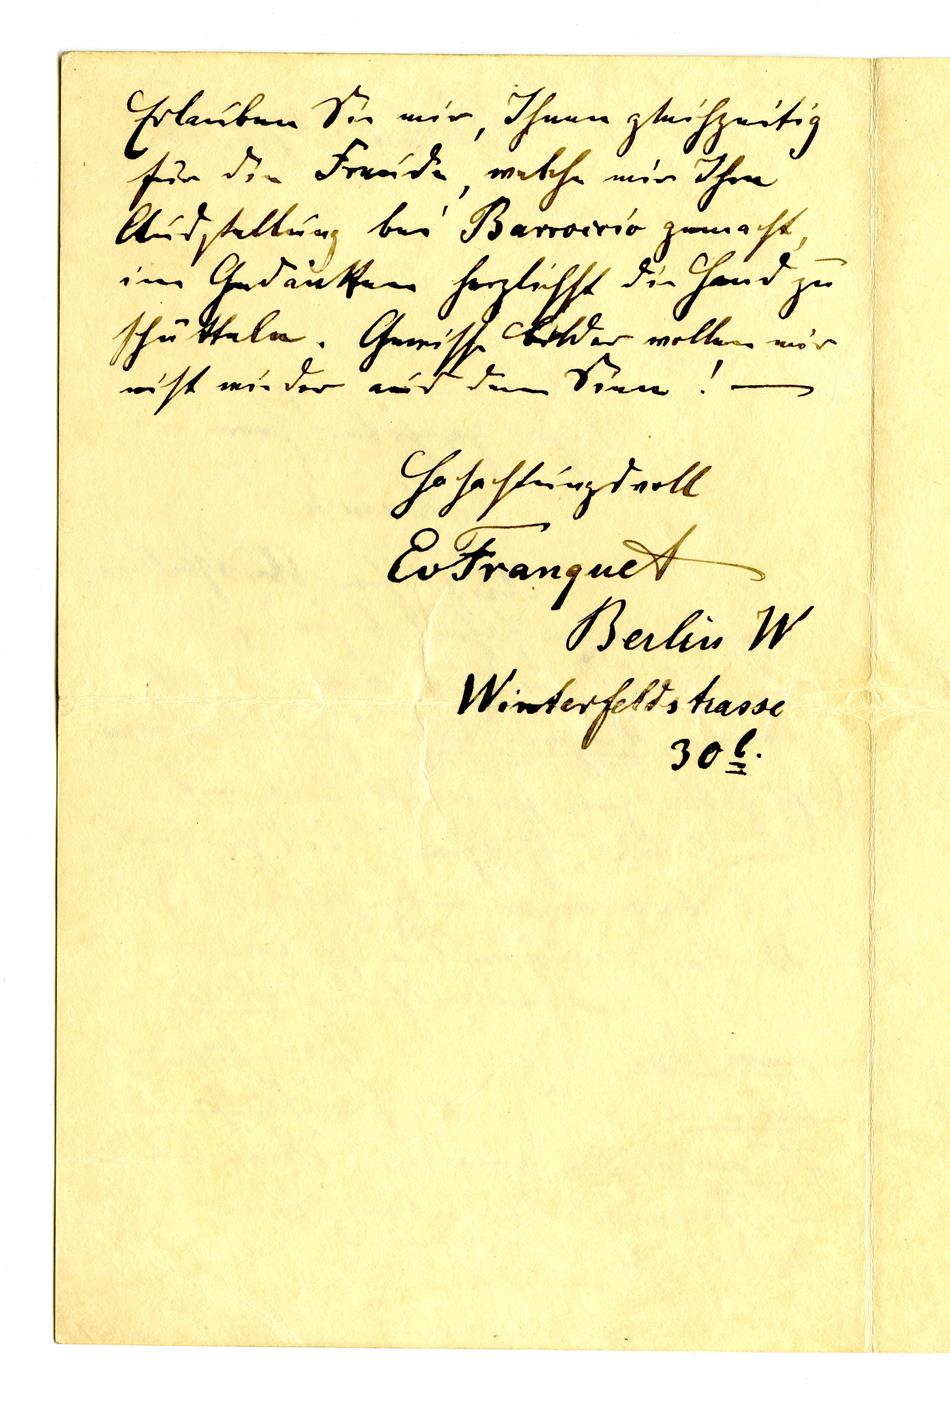 Erlauben Sie mir, Ihnen gleichzeitig
für die Freude, welche mir Ihre
Ausstellung bei Barroccio gemacht,
im Gedanken herzlichst die Hand zu
schütteln. Gewisse Bilder wollen mir
nicht wieder aus dem Sinn! —
Hochachtungsvoll
EvFranquet
Berlin W
Winterfeldstrasse
30